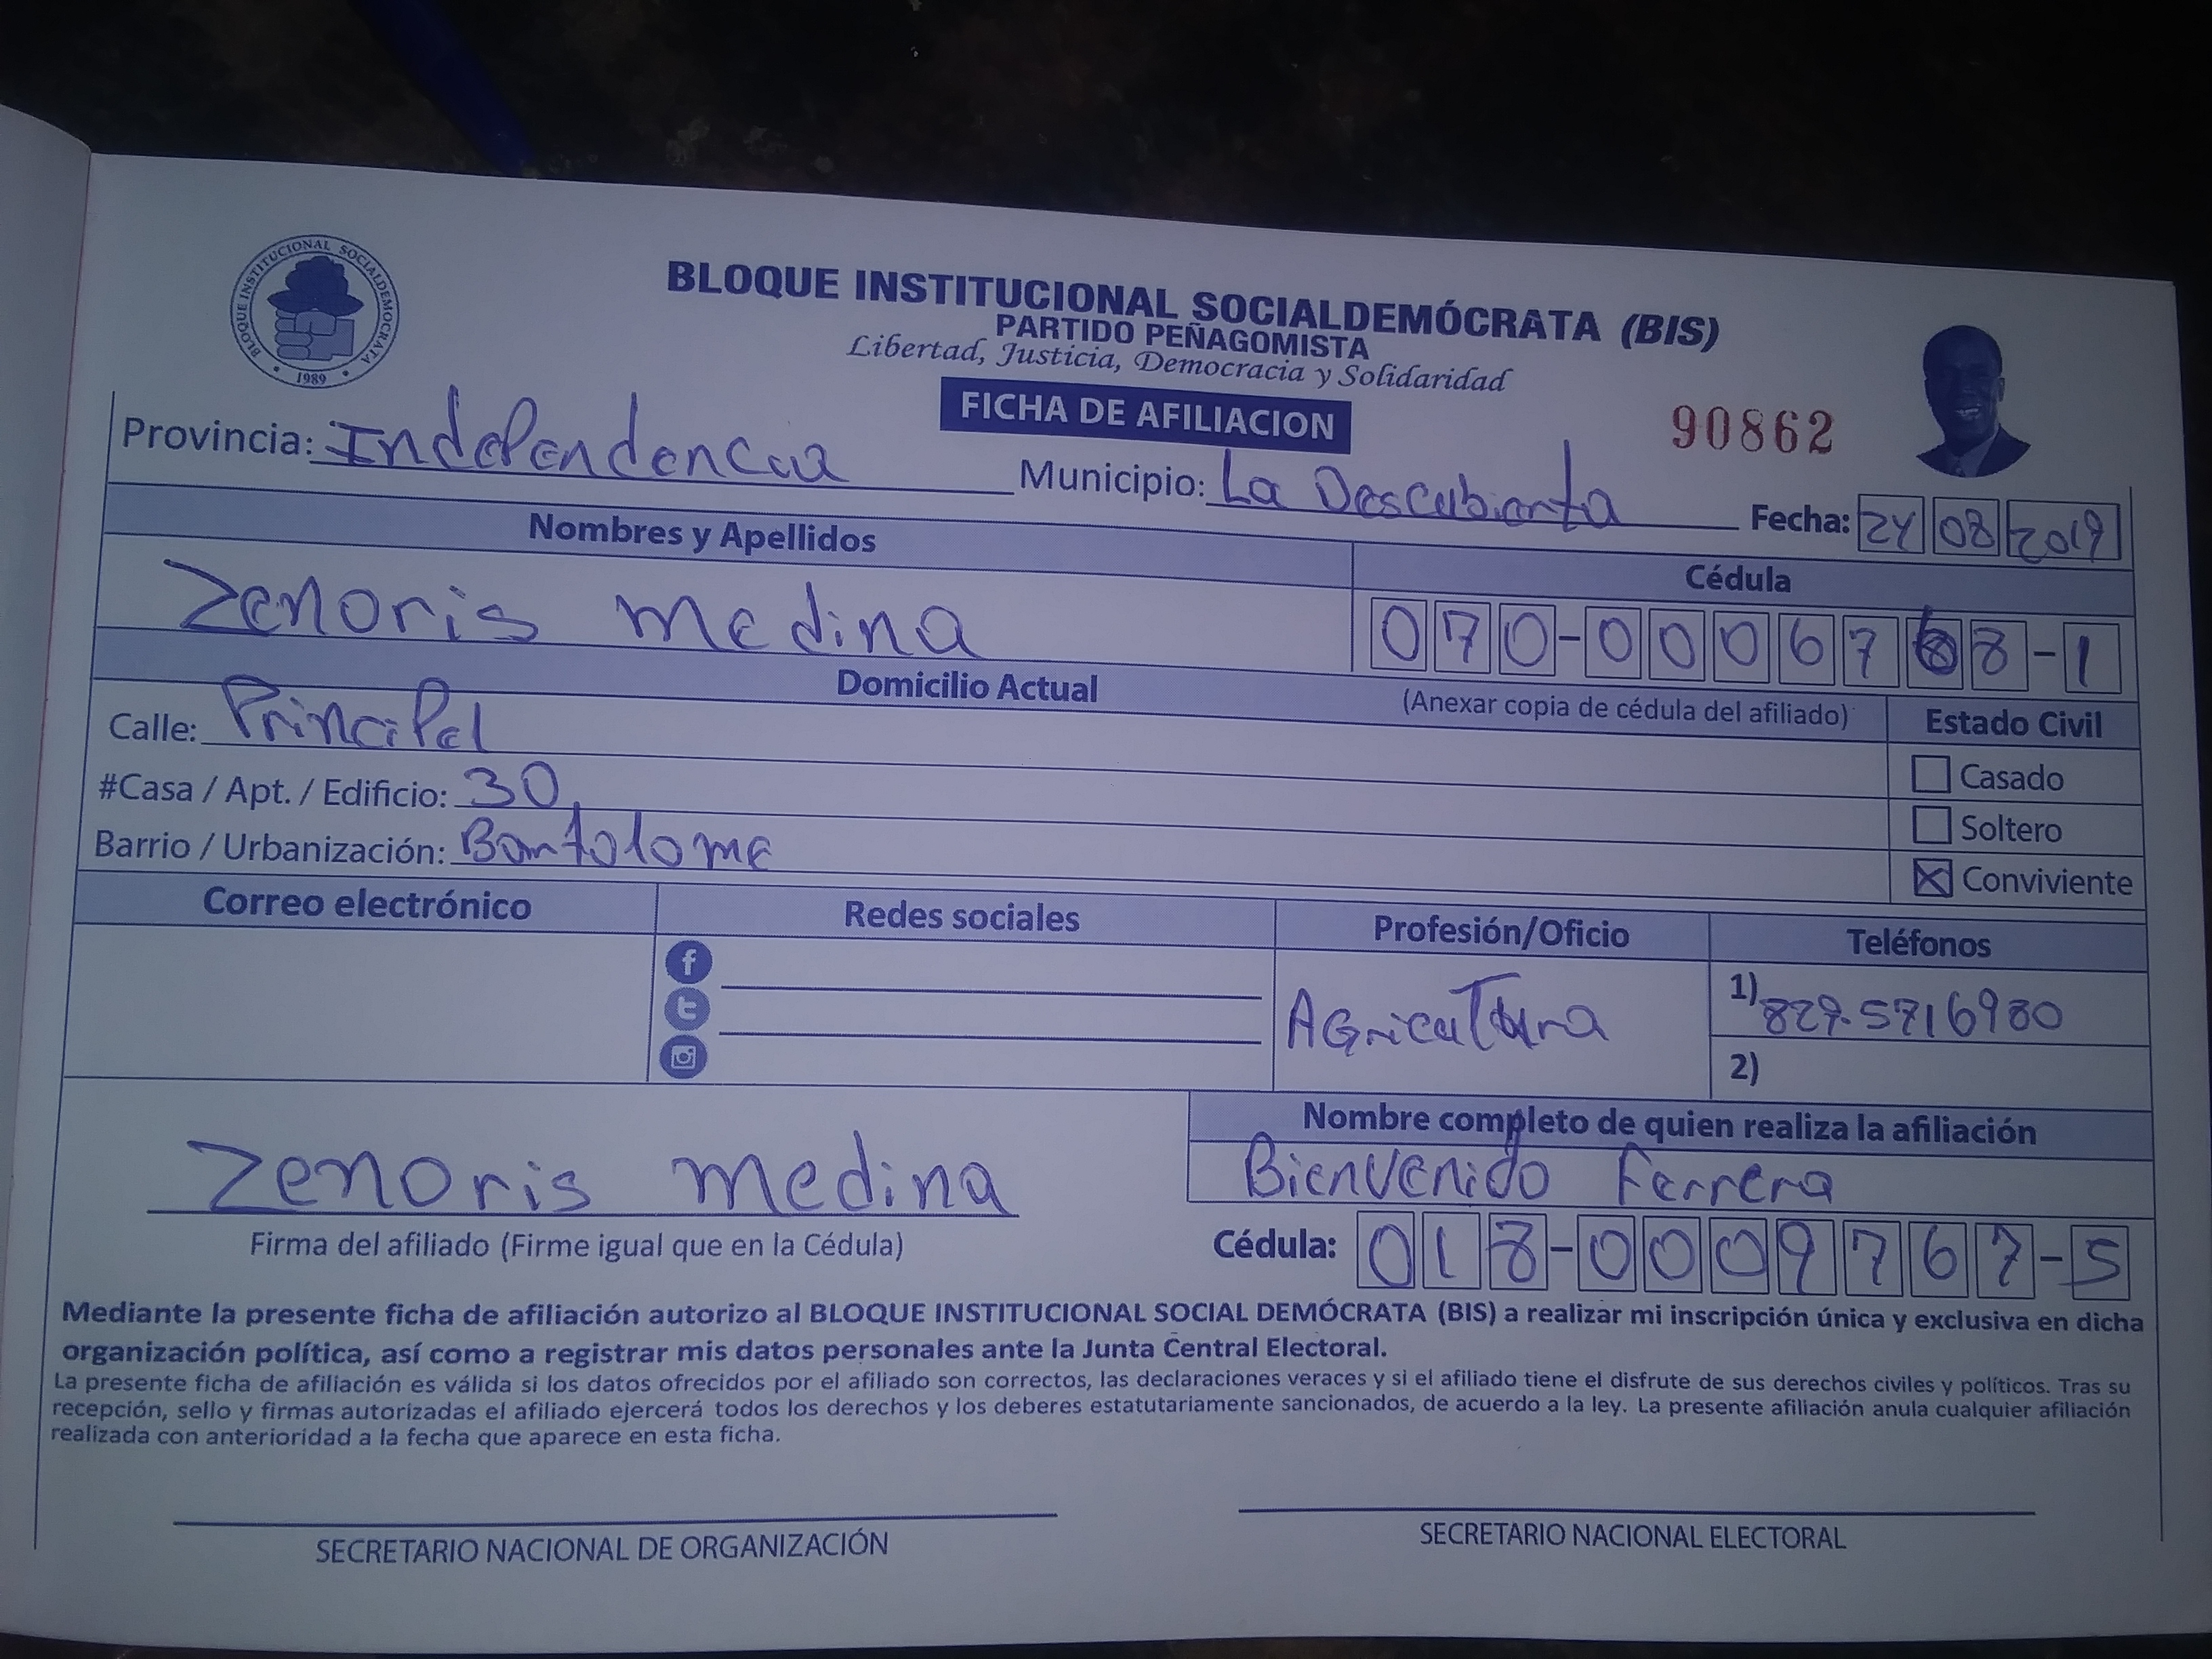 BLOQUE INSTITUCIONAL SOCIALDEMOCRATA
1989
BLOQUE INSTITUCIONAL SOCIALDEMÓCRATA (BIS)
PARTIDO PEÑAGOMISTA
Libertad, Justicia, Democracia y Solidaridad
FICHA DE AFILIACION
90862
Provincia: Independencia Municipio: La Descubierta Fecha: 24 08 2019
Nombres y Apellidos Cédula
Zenoris medina 070-0006768-1
Domicilio Actual (Anexar copia de cédula del afiliado) Estado Civil
Calle: Principal
Casado
#Casa / Apt. / Edificio: 30
Soltero
Barrio / Urbanización: Bartolome
Conviviente
Correo electrónico Redes sociales Profesión/Oficio Teléfonos
Agricultura
1) 829-5716980
2)
Nombre completo de quien realiza la afiliación
Zenoris medina Bienvenido Ferrera
Firma del afiliado (Firme igual que en la Cédula) Cédula: 018-0009767-5
Mediante la presente ficha de afiliación autorizo al BLOQUE INSTITUCIONAL SOCIAL DEMÓCRATA (BIS) a realizar mi inscripción única y exclusiva en dicha
organización política, así como a registrar mis datos personales ante la Junta Central Electoral.
La presente ficha de afiliación es válida si los datos ofrecidos por el afiliado son correctos, las declaraciones veraces y si el afiliado tiene el disfrute de sus derechos civiles y políticos. Tras su
recepción, sello y firmas autorizadas el afiliado ejercerá todos los derechos y los deberes estatutariamente sancionados, de acuerdo a la ley. La presente afiliación anula cualquier afiliación
realizada con anterioridad a la fecha que aparece en esta ficha.
SECRETARIO NACIONAL DE ORGANIZACIÓN SECRETARIO NACIONAL ELECTORAL